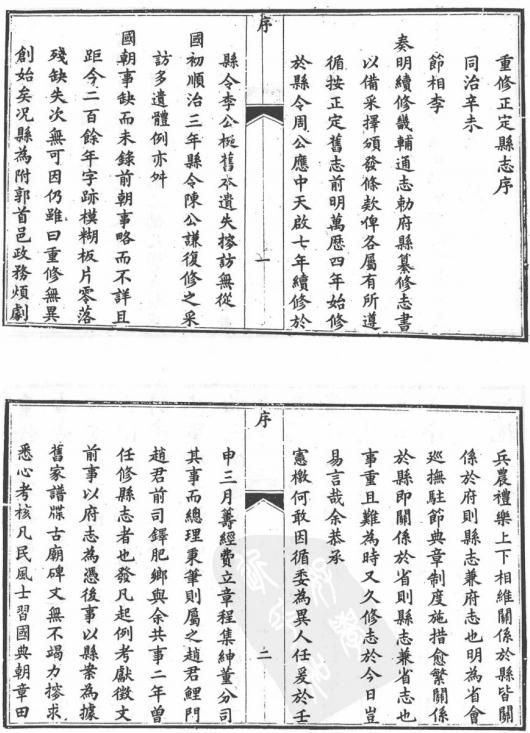 重修正定縣志序
同治辛未
節相李
奏明續修畿輔通志勅府縣纂修志書
以備采擇頒發條欵俾各屬有所遵
循按正定舊志前明萬厯四年始修
於縣令周公應中天啟七年續修於
序
一
縣令李公梔舊夲遺失搜訪無從
國初順治三年縣令陳公謙復修之采
訪多遺體例亦舛
國朝事缺而未錄前朝事略而不詳且
距今二百餘年字跡模糊板片零落
殘缺失次無可因仍雖曰重修無異
創始矣况縣為附郭首邑政務煩劇
兵農禮樂上下相維關係於縣皆關
係於府則縣志兼府志也明為省會
廵撫駐節典章制度施措愈繁關係
於縣即關係於省則縣志兼省志也
事重且難為時又久修志於今日豈
易言哉余恭承
憲檄何敢因循委為異人任爰於壬
序
二
申三月籌經費立章程集紳董分司
其事而總理秉筆則屬之趙君鯉門
趙君前司鐸肥鄉與余共事二年曾
任修縣志者也發凡起例考獻徵文
前事以府志為憑後事以縣案為據
舊家譜牒古廟碑文無不竭力搜求
悉心考核凡民風士習國典朝章田